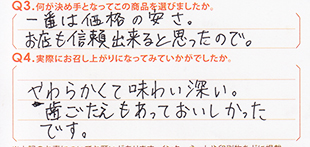 Q3.何が決め手となってこの商品を選びましたか。
一番は価格の安さ。
お店も信頼出来ると思ったので。
Q4.実際にお召し上がりになってみていかがでしたか。
やわらかくて味わい深い。
歯ごたえもあっておいしかった
です。